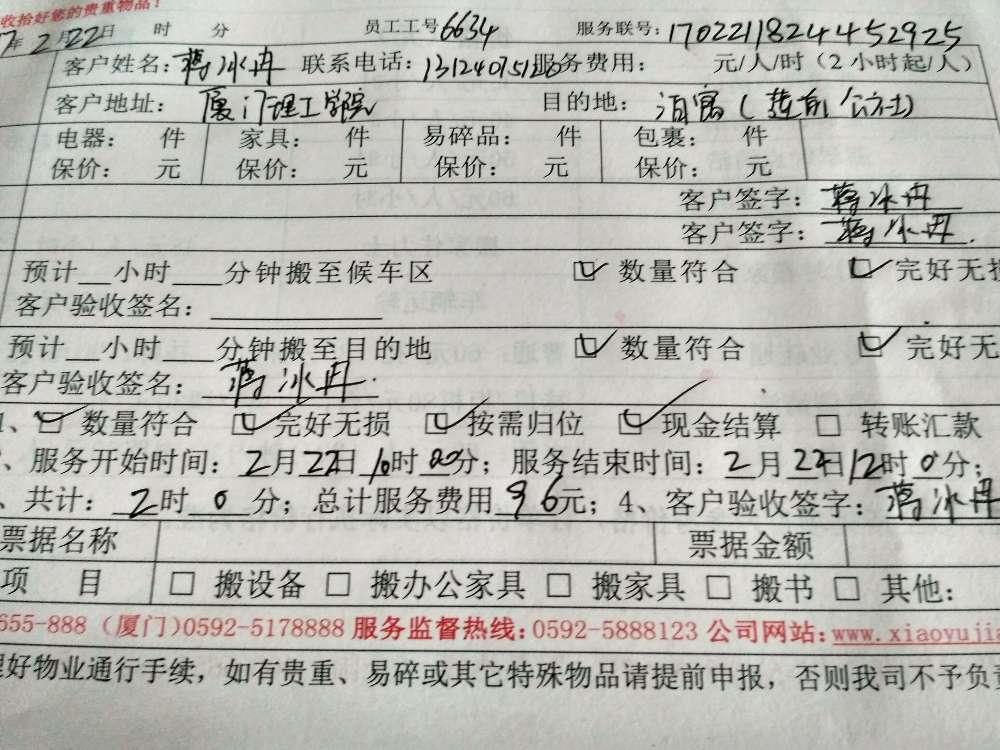 收拾好您的贵重物品！
7年2月22日 时 分 员工工号6634 服务联号：1702211824452925
客户姓名：蒋冰冉 联系电话：服务费用： 元/人/时（2小时起/人）
客户地址： 厦门理工学院 目的地： （莲前/公社）
电器： 件 家具： 件 易碎品： 件 包裹： 件
保价： 元 保价： 元 保价： 元 保价： 元
客户签字：蒋冰冉
客户签字：蒋冰冉
预计 小时 分钟搬至候车区 数量符合 完好无损
客户验收签名：
预计 小时 分钟搬至目的地 数量符合 完好无
客户验收签名：蒋冰冉
1、 数量符合 完好无损 按需归位 现金结算 □ 转账汇款
、服务开始时间：2月22日10时00分；服务结束时间：2月22日12时0分；
、共计：2时0分；总计服务费用96元；4、客户验收签字：蒋冰冉
票据名称 票据金额
项 目 □ 搬设备 □ 搬办公家具 □ 搬家具 □ 搬书 □ 其他：
655-888（厦门)0592-5178888 服务监督热线：0592-5888123 公司网站：www.xiaoyujia
理好物业通行手续，如有贵重、易碎或其它特殊物品请提前申报，否则我司不予负责